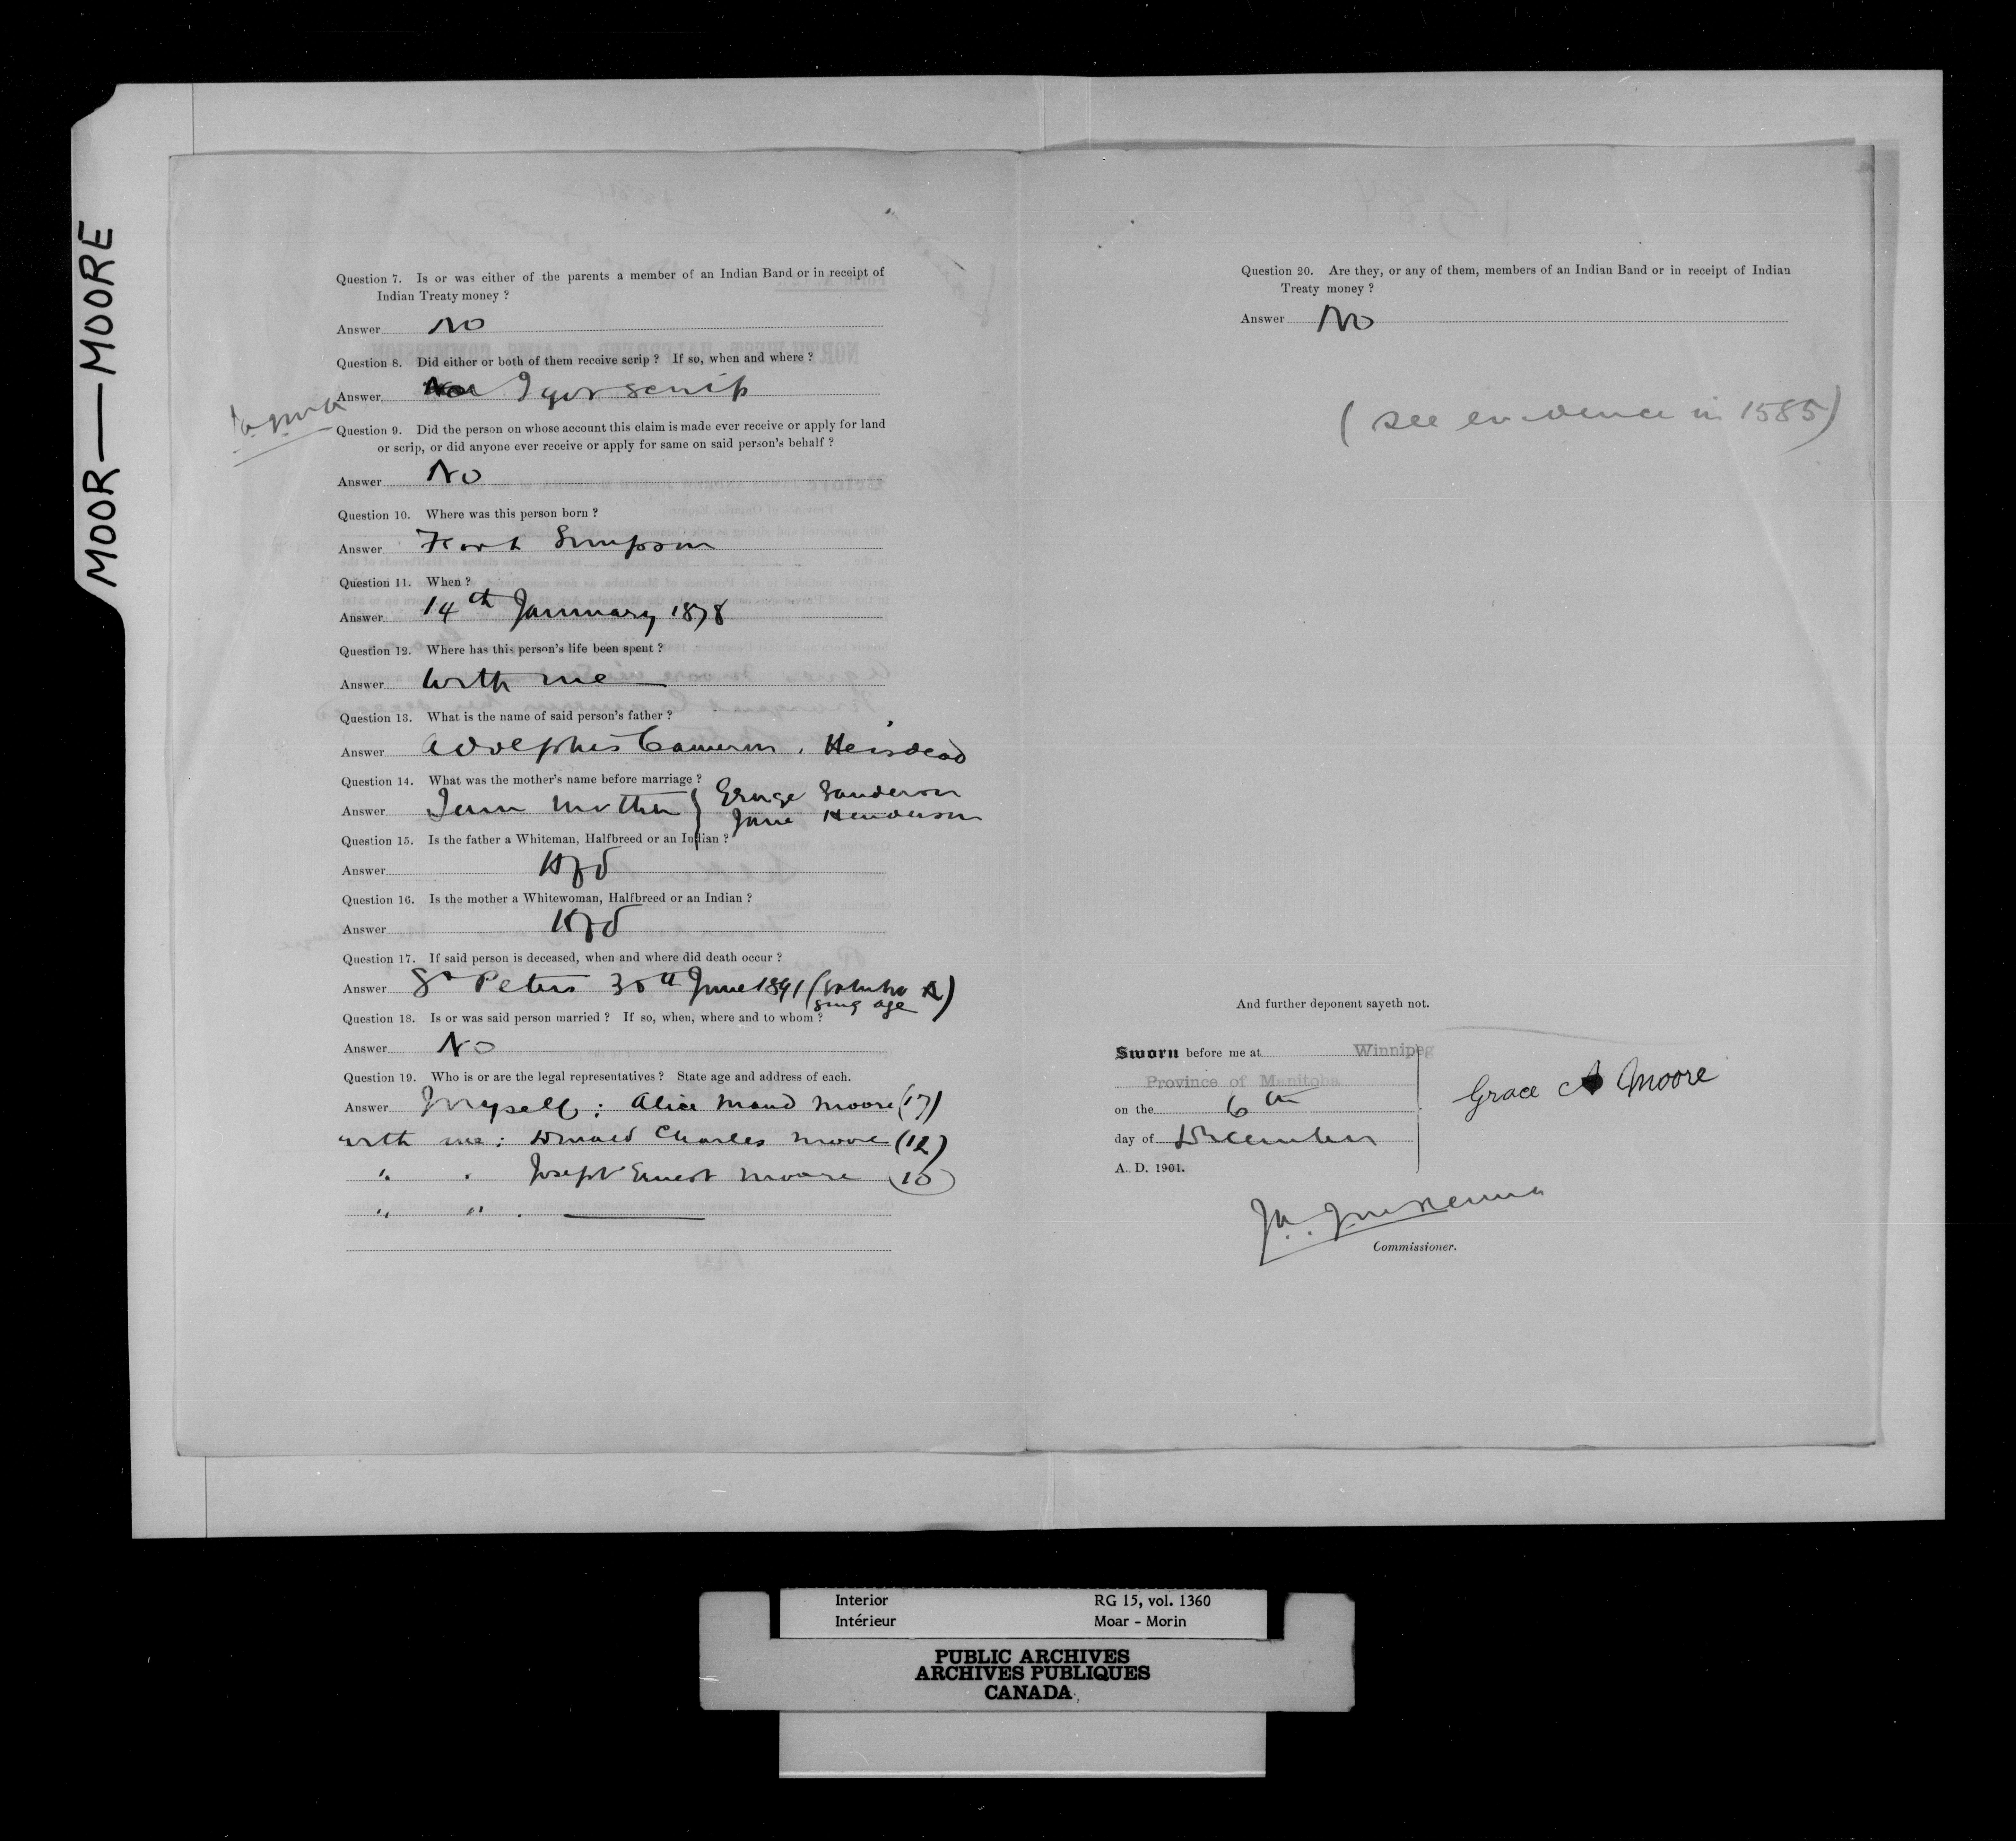 MOOR—MOORE
Question 7. Is or was either of the parents a member of an Indian Band or in receipt of
Indian Treaty money ?
Answer No
Question 8. Did either or both of them receive scrip ? If so, when and where ?
Answer I got scrip
Question 9. Did the person on whose account this claim is made ever receive or apply for land
or scrip, or did anyone ever receive or apply for same on said person's behalf ?
Answer No
Question 10. Where was this person born ?
Answer Fort Simpson
Question 11. When ?
Answer 14th January 1878
Question 12. Where has this person's life been spent ?
Answer With me
Question 13. What is the name of said person's father ?
Answer Adolphus Cameron. He is dead
Question 14. What was the mother's name before marriage ?
Answer I am mother } George Sanderson
Jane Henderson
Question 15. Is the father a Whiteman, Halfbreed or an Indian ?
Answer Hfd
Question 16. Is the mother a Whitewoman, Halfbreed or an Indian ?
Answer Hfd
Question 17. If said person is deceased, when and where did death occur ?
Answer St Peters 30th June 1891
age
Question 18. Is or was said person married ? If so, when, where and to whom ?
Answer No
Question 19. Who is or are the legal representatives ? State age and address of each.
Answer Myself ; Alice Maud Moore (17)
with me ; Donald Charles Moore (12)
" " Joseph Ernest Moore (10)
" "
Question 20. Are they, or any of them, members of an Indian Band or in receipt of Indian
Treaty money ?
Answer No
( see evidence in 1585 )
And further deponent sayeth not.
Sworn before me at Winnipeg
Province of Manitoba
on the 6th
day of December
A. D. 1901.
Grace A Moore
Commissioner.
Interior RG 15, vol. 1360
Intérieur Moar - Morin
PUBLIC ARCHIVES
ARCHIVES PUBLIQUES
CANADA